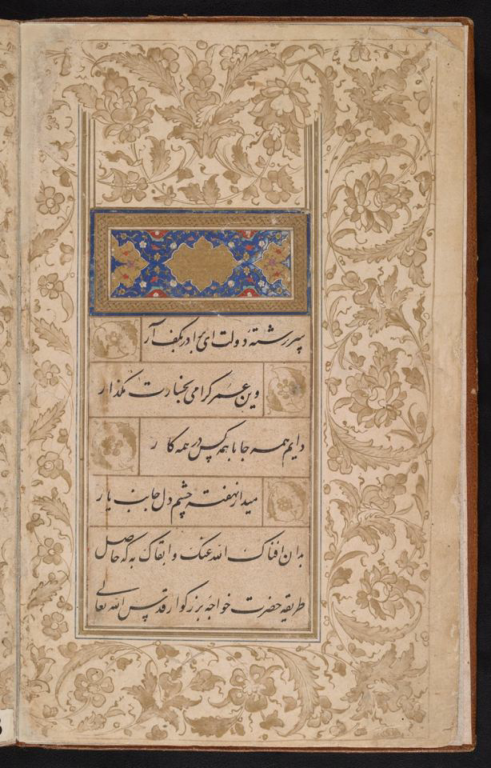 سررشته دولت ای برادر بکف آر
وین عمر گرامی بخسارت مگذار
دایم همه جا با همه کس در همه کار
میدار نهفته چشم دل جانب یار
بدان افناک الله عنک و ابقاک به که حاصل
طریقه حضرت خواجه بزرکوار قدس الله تعالی